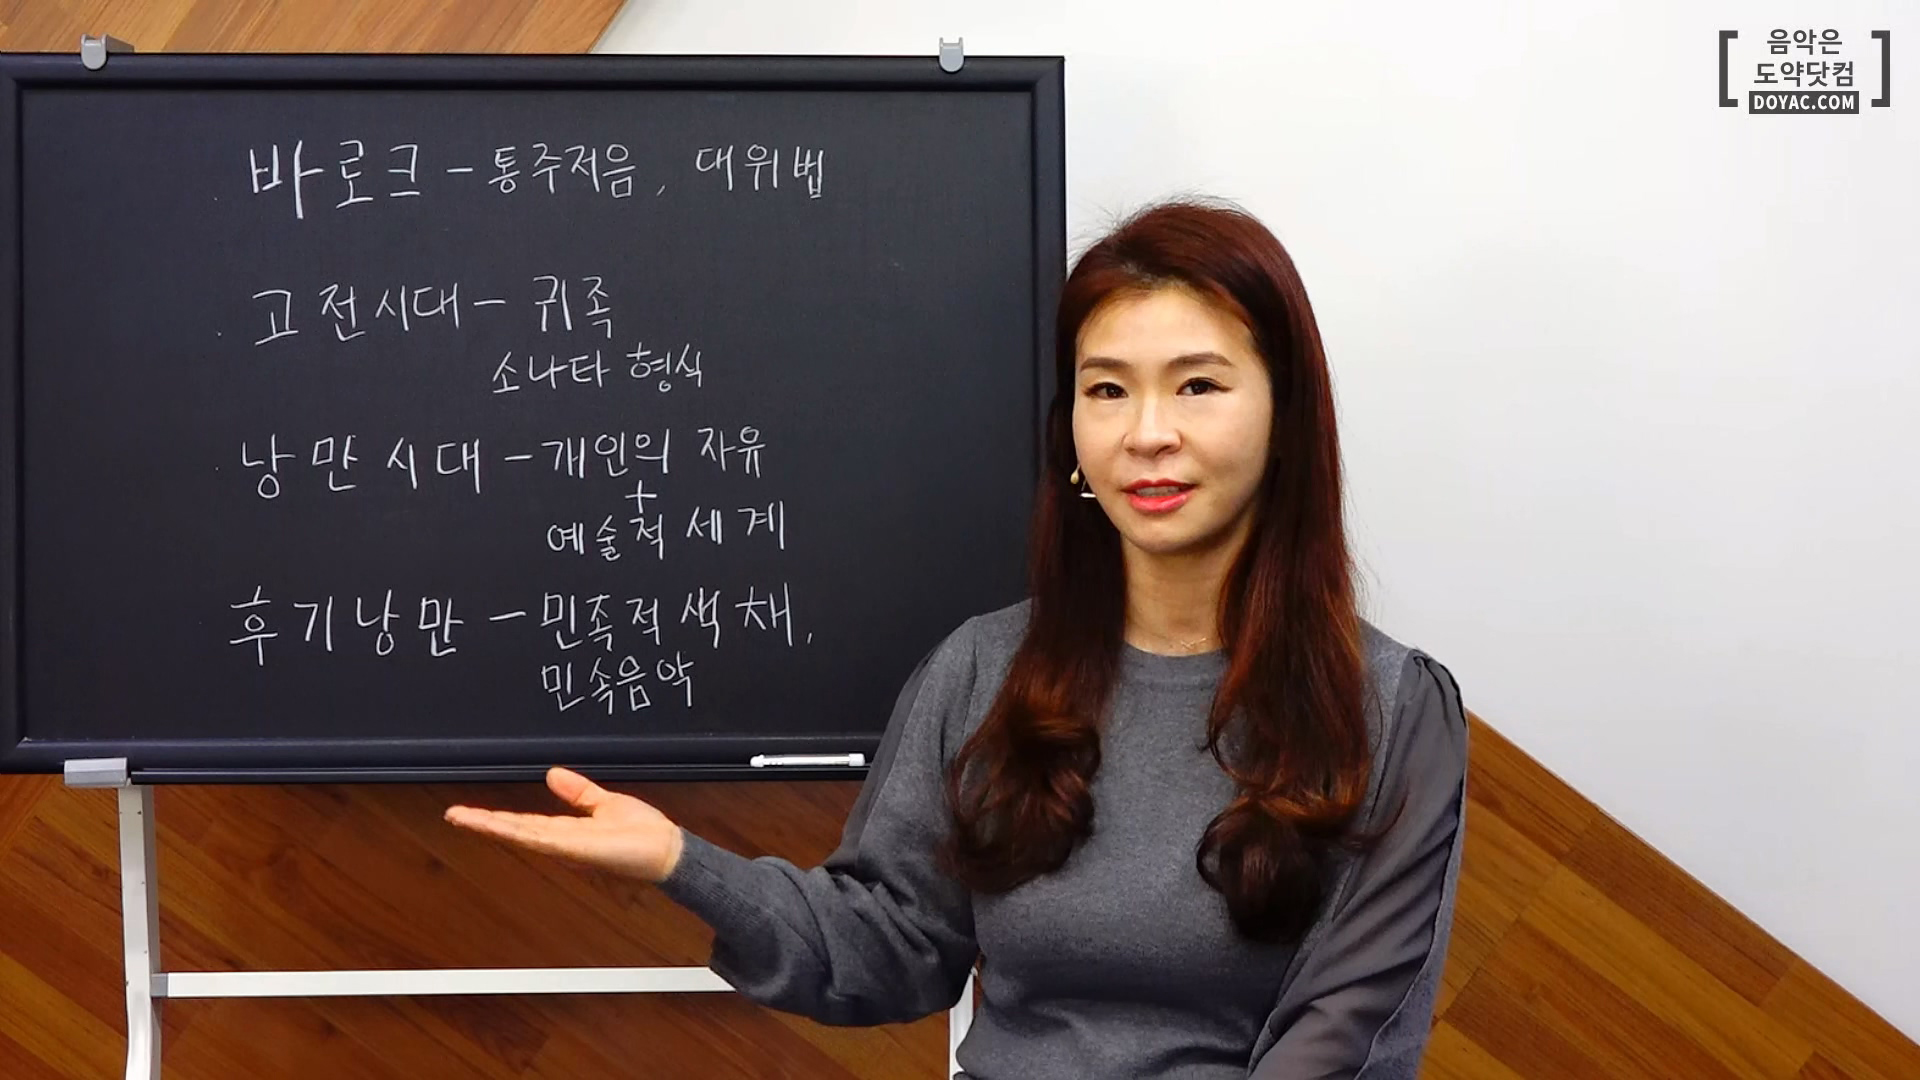 음악은
도약닷컴
DOYAC.COM
바로크 - 통주저음, 대위법
고전시대 - 귀족
소나타 형식
낭만시대 - 개인의 자유
+
예술적 세계
후기낭만 - 민족적 색채,
민속음악